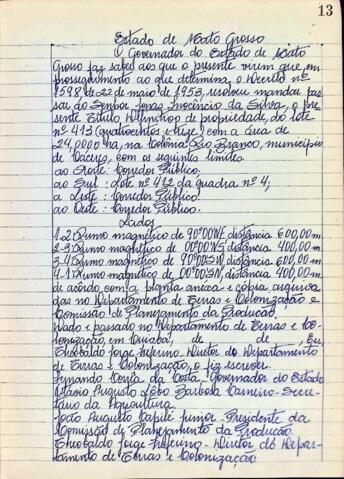 13
Estado de Mato Grosso
O Governador do Estado de Mato
Grosso faz saber aos que o presente virem que, em
prosseguimento ao que determina o Decreto nº
1598, de 22 de maio de 1953, resolveu mandar pas
sar ao Senhor Jonas Inocêncio da Silva, o pre
sente Título Definitivo de propriedade, do lote
nº 413 (quatrocentos e treze) com a área de
24,0000 ha, na Colônia Rio Branco, município
de Cáceres, com os seguintes limites
ao Norte: Corredor Público.
ao Sul: Lote nº 412 da quadra nº 4;
a Leste: Corredor Público.
ao Oeste: Corredor Público.
Lados
1-2: Rumo magnético de 90°00'NE, distância 600,00 m.
2-3: Rumo magnético de 00°00'NS, distância 400,00 m.
3-4: Rumo magnético de 90°00'SW, distância 600,00 m.
4-1: Rumo magnético de 00°00'SN, distância 400,00 m.
de acôrdo com a planta anexa e cópia arquiva
das no Departamento de Terras e Colonização e
Comissão de Planejamento da Produção.
Dado e passado no Departamento de Terras e Co-
lonização, em Cuiabá, de de , Eu,
Theobaldo Jorge, Diretor do Departamento
de Terras e Colonização, o fiz escrever.
Fernando Corrêa da Costa, Governador do Estado
Otávio Augusto Lobo Barbosa Carneiro - Secre-
tário da Agricultura.
João Augusto Capilé Junior - Presidente da
Comissão de Planejamento da Produção.
Theobaldo Jorge - Diretor do Depar-
tamento de Terras e Colonização.